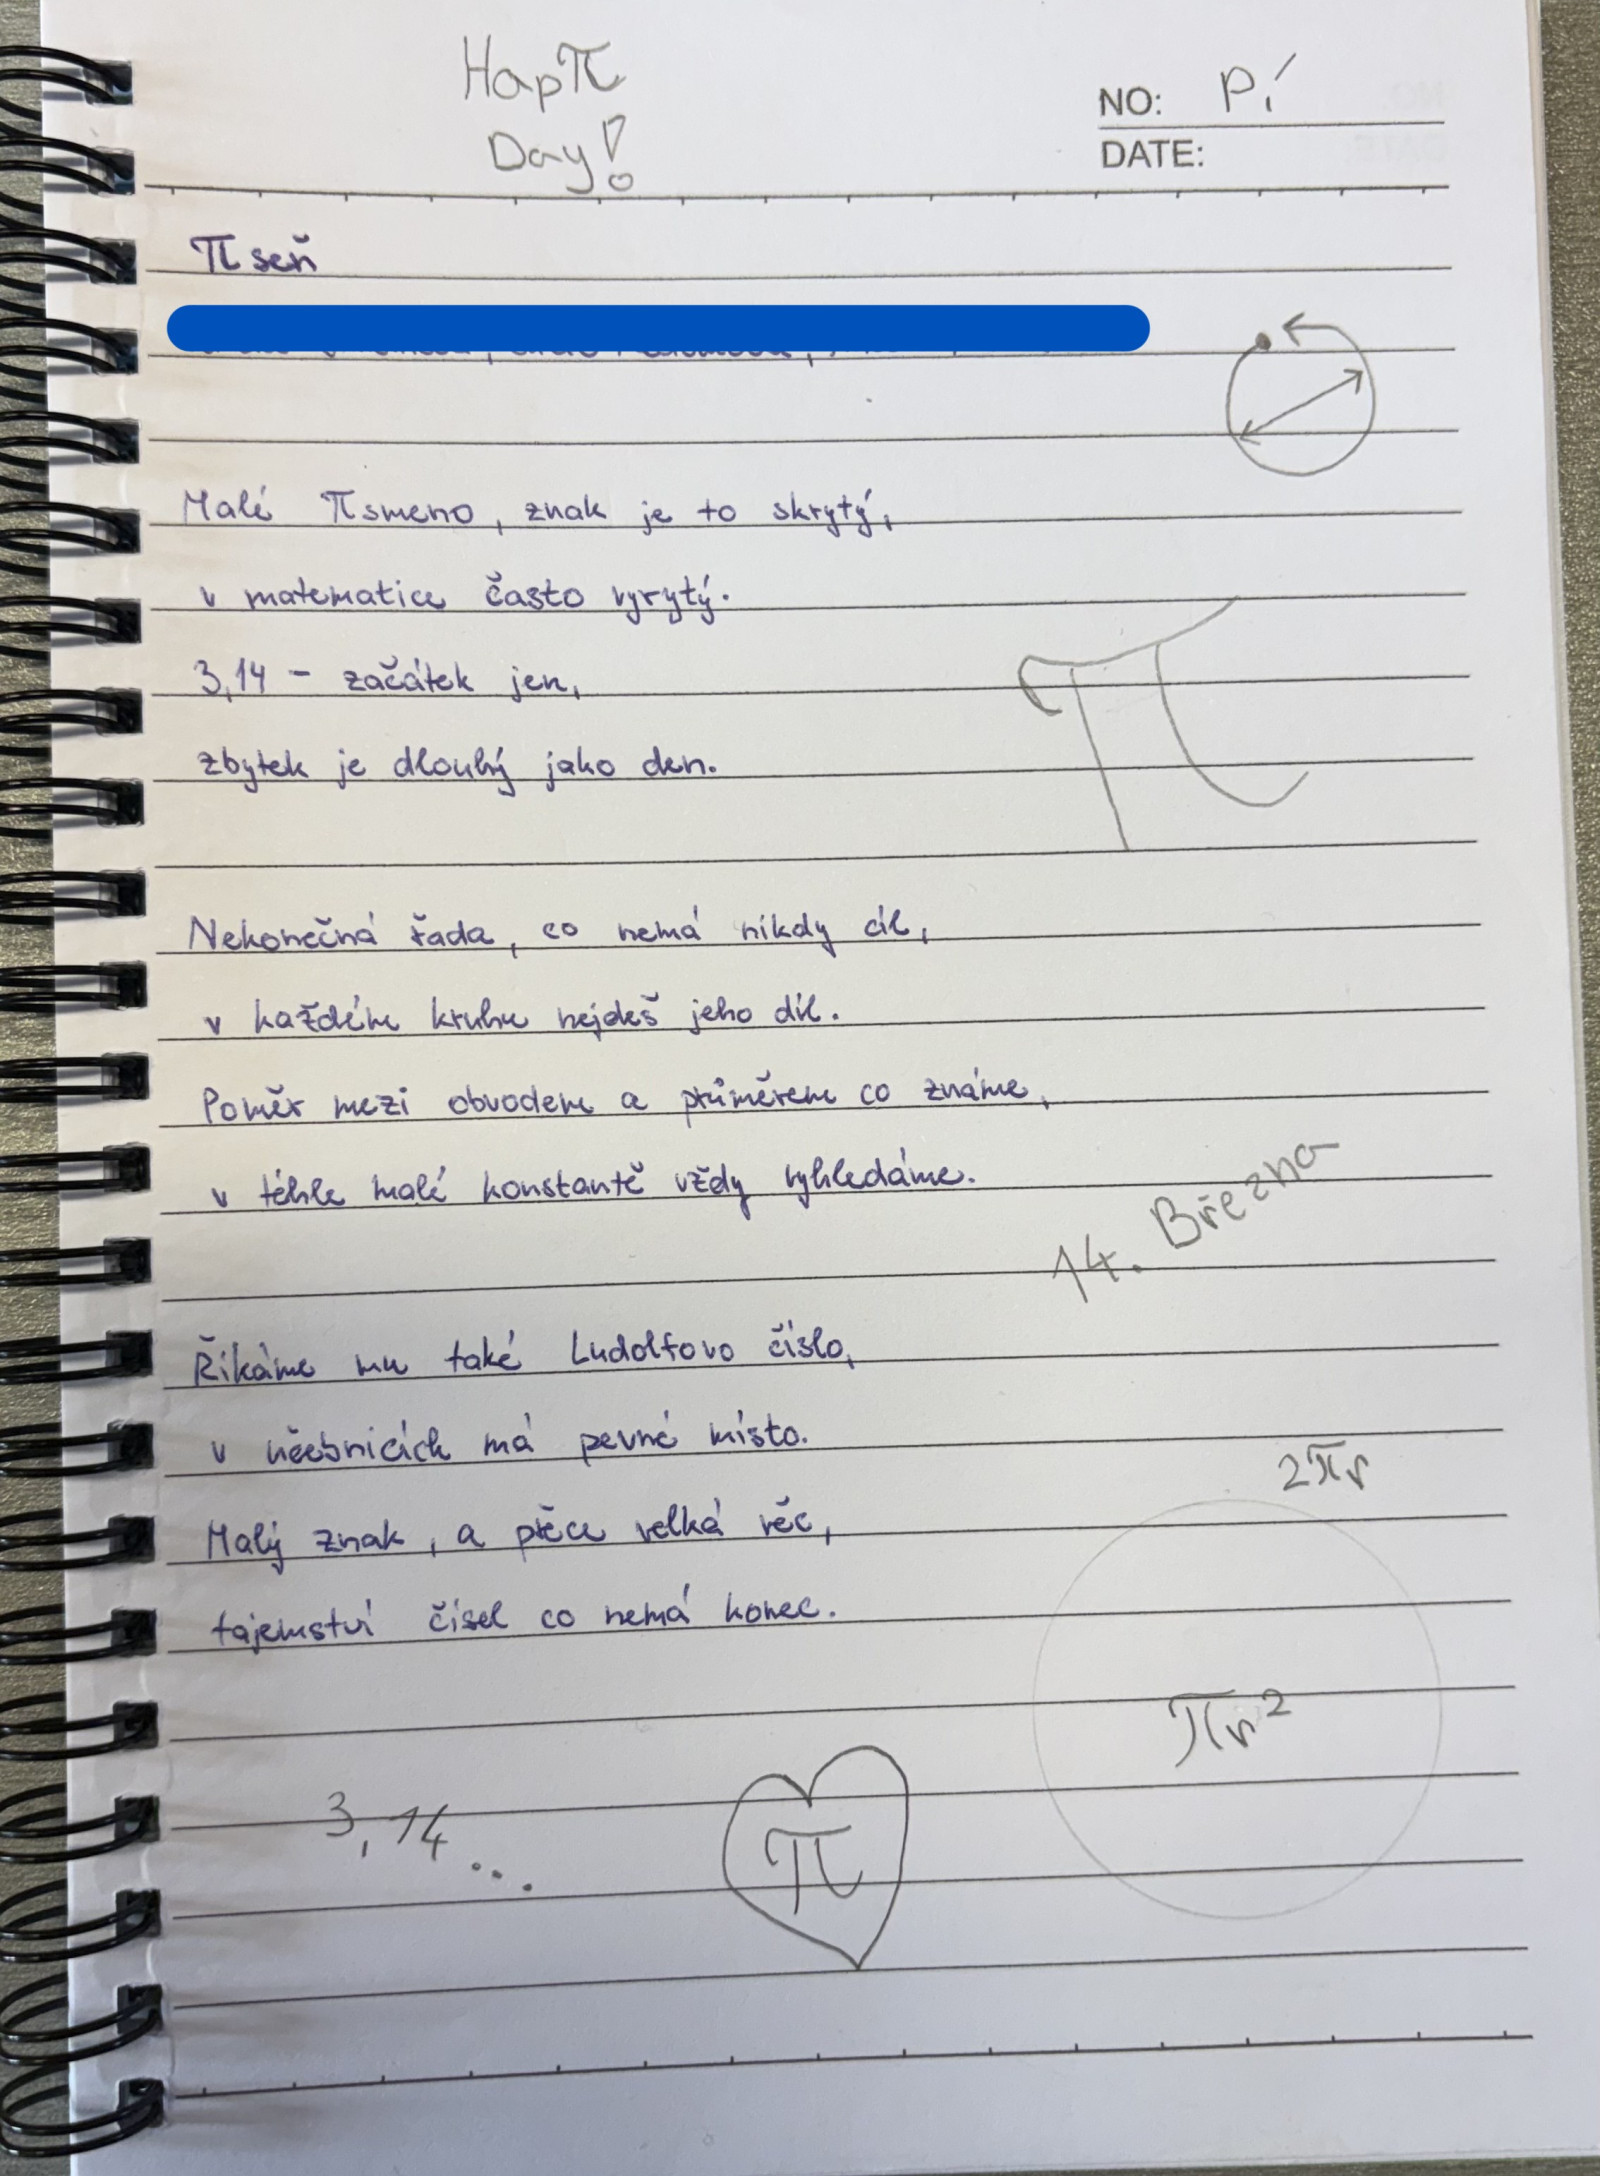 Hapπ
Day!
NO: Pí
DATE:
πseň
Malé πsmeno, znak je to skrytý,
v matematice často vyrytý.
3,14 - začátek jen,
zbytek je dlouhý jako den.
π
Nekonečná řada, co nemá nikdy cíl,
v každém kruhu najdeš jeho díl.
Poměr mezi obvodem a průměrem co známe,
v téhle malé konstantě vždy vyhledáme.
14. Března
Říkáme mu také Ludolfovo číslo,
v učebnicích má pevné místo.
Malý znak, a přece velká věc,
tajemství čísel co nemá konec.
2πr
πr²
3,14...
π